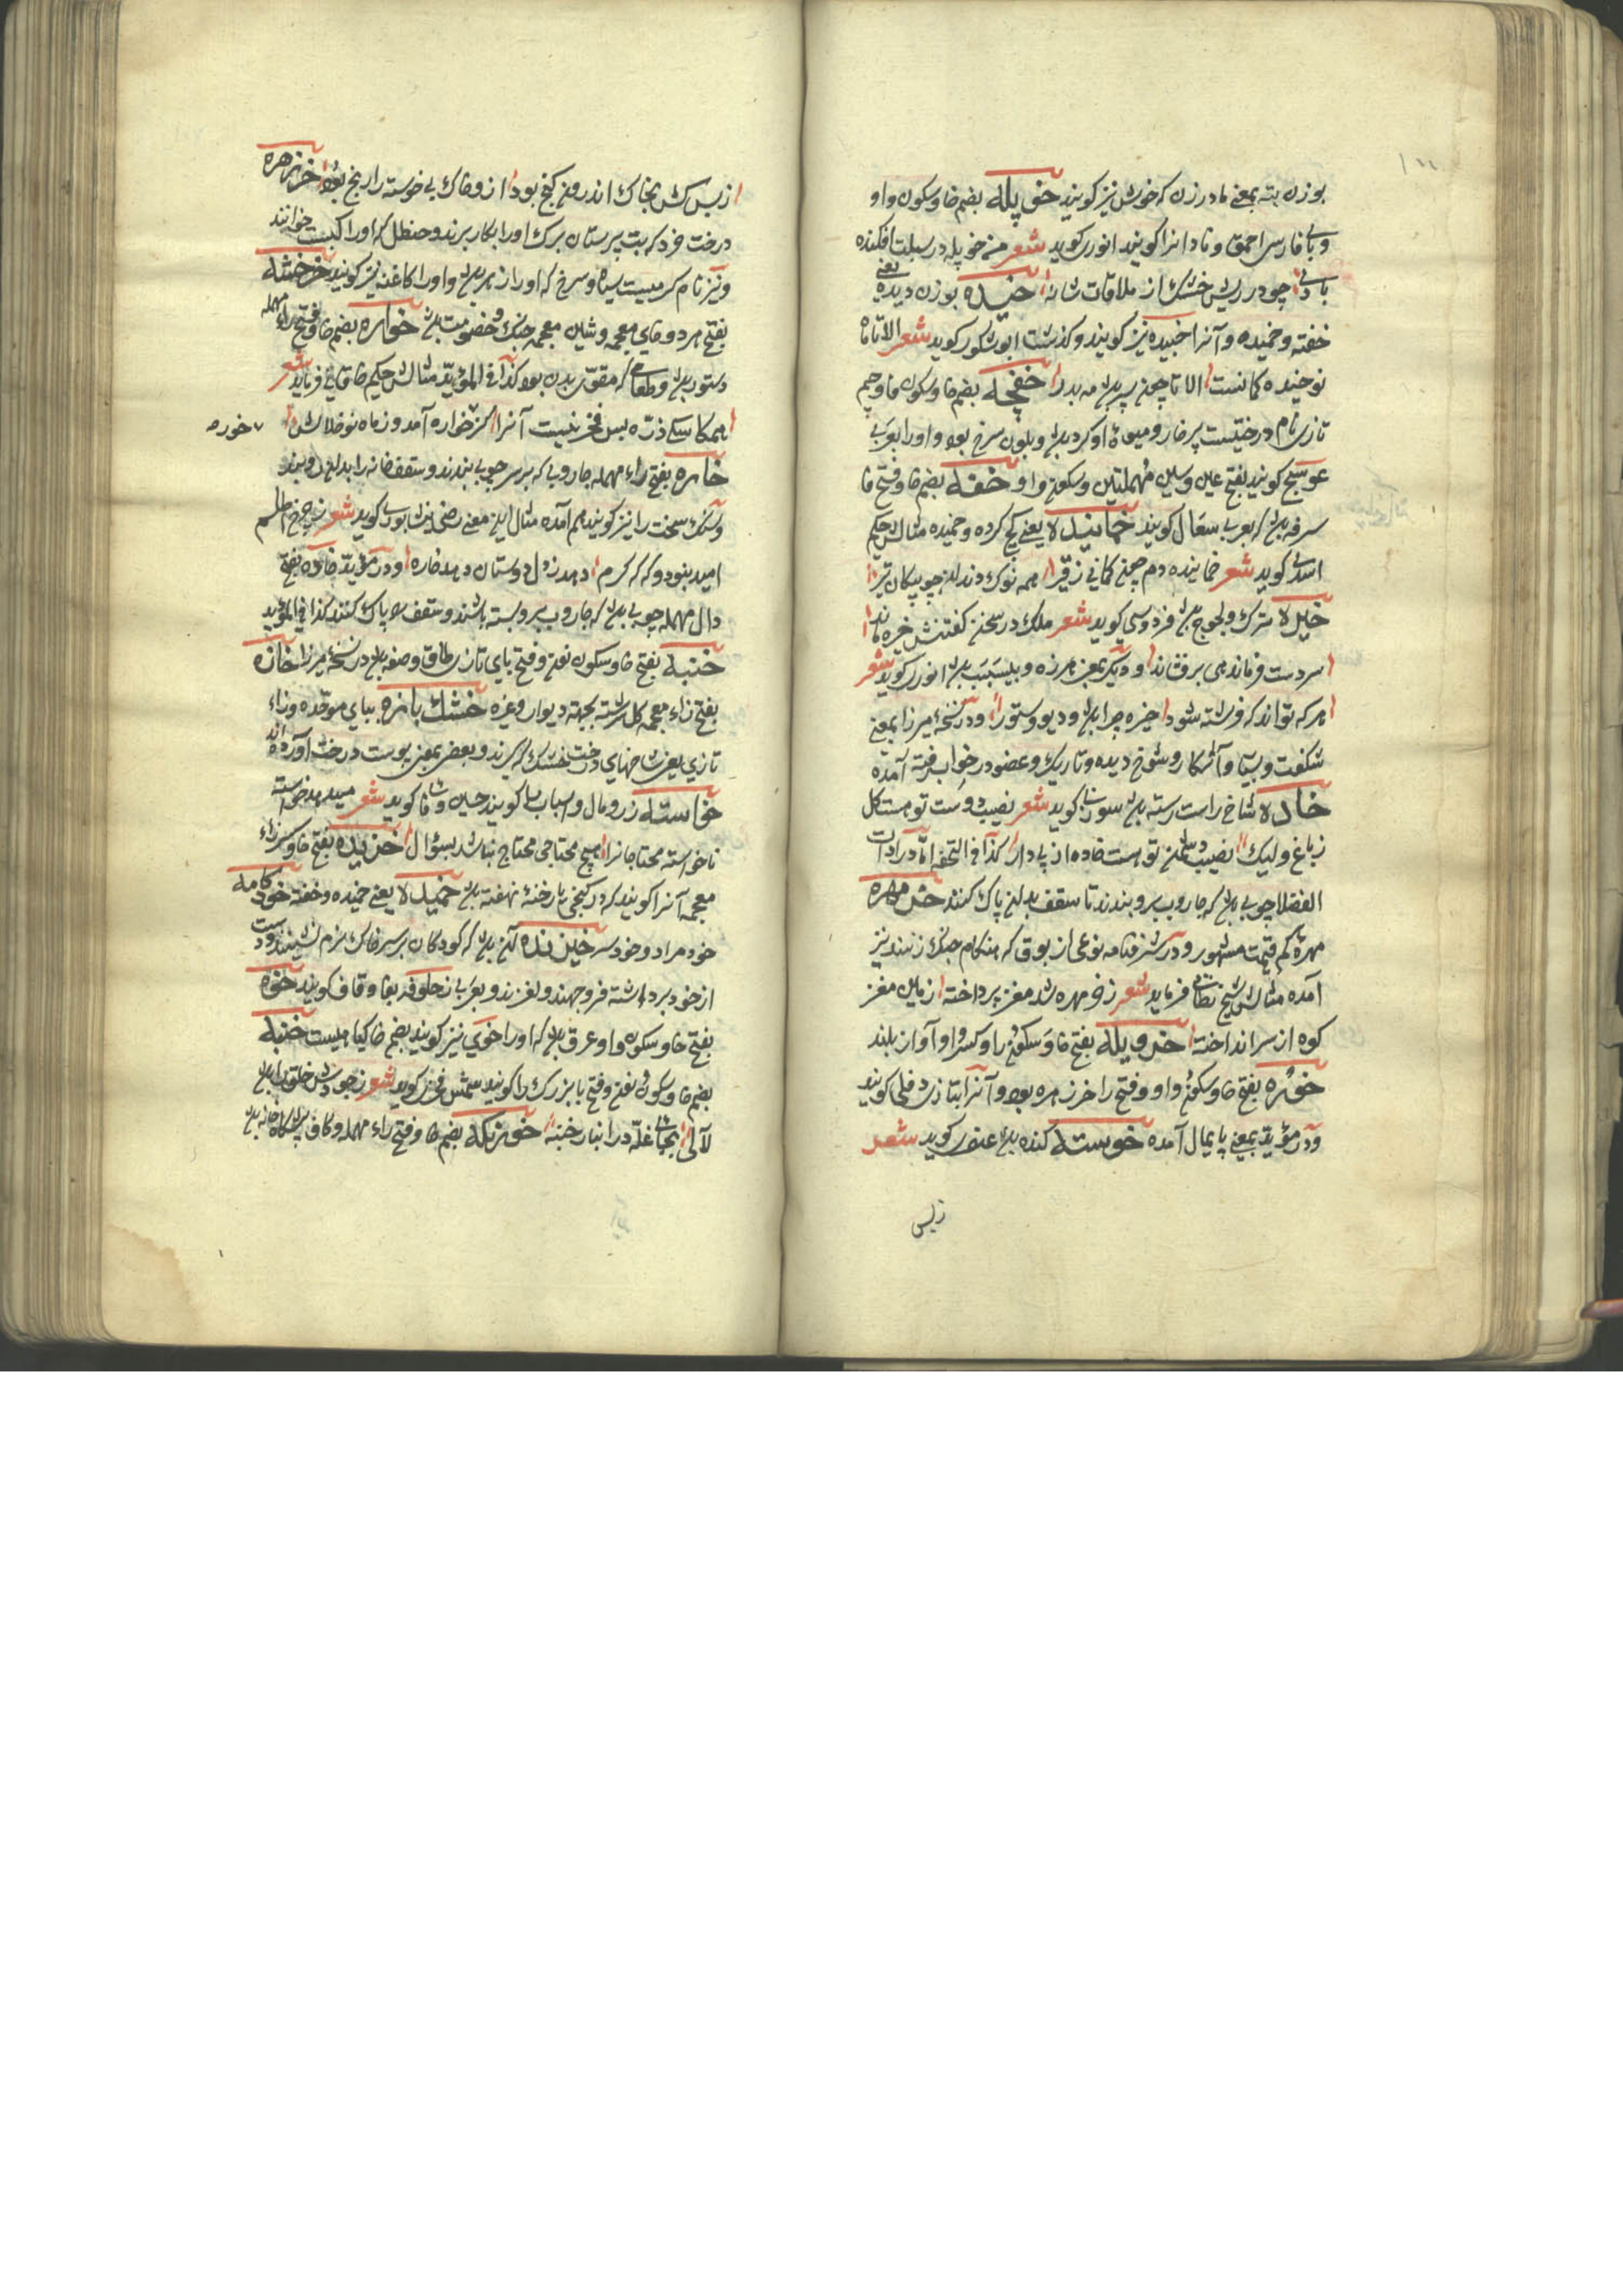 بوزن بته بمعنی مادرزن که خوش نیز کویند خوپله بضم خا وسکون واو
وبای فارسی احمق ونادانرا کویند انوری کوید شعر خوپله در سبلت افکنده
بادی چو در ریش خشک از ملاقات شانه خیده بوزن دیده یعنی
خفته وخمیده وآنرا خبیده نیز کویند وکذشت ابوشکور کوید شعر الا تا ماه
نو خیده کمانست الا تا چون سپر باشد مه بدر خفچه بضم خا وسکون فا وجیم
تازی نام درختیست پر خار ومیوه او کرد باشد وبلون سرخ بود واورا بعربی
عوسج کویند بفتح عین وسین مهملتین وسکون واو خفه بضم خا وفتح فا
سرفه باشد که بعربی سعال کویند خمانیده یعنی کج کرده وخمیده مثالش حکیم
اسدی کوید شعر خمانیده دم چون کمانی ز قیر همه نوک دندان چو پیکان تیر
خیره سترک ولجوج باشد فردوسی کوید شعر ملک در سخن کفتنش خیره ماند
سر دست فرماندهی برفشاند ودیگر بمعنی هرزه وبیسبب باشد انوری کوید شعر
هر که تواند که فرشته شود خیره چرا باشد ودیو وستور ودر نسخه میرزا بمعنی
شکفت وبسیار وآشکار وشوخ دیده وتاریک وعضو در خواب رفته آمده
خاده شاخ راست رسته باشد سوزنی کوید شعر نصیب دوست تو هست کل
ز باغ ولیک نصیب دشمن تو هست خاده از پی دار کذا فی التحفه اما در ادات
الفضلا چوبی باشد که جاروب برو بندند تا سقف بدان پاک کنند خرمهره
مهره کم قیمت مشهور ودر شرفنامه نوعی از بوق که هنکام جنک زنند نیز
آمده مثالش شیخ نظامی فرماید شعر ز خرمهره شد مغز پرداخته زمین مغز
کوه از سر انداخته خرویله بفتح خا وسکون را وکسر واو آواز بلند
خوره بفتح خا وسکون واو وفتح را خرزهره بود وآنرا بتازی دفلی کویند
ودر مؤید بمعنی پایمال آمده خوسته کنده باشد عنصری کوید شعر
زبس
ازبس کش بخاک اندرون کنج بود ازو خاک پی خوسته را رنج بود خرزهره
درخت خرد که بت پرستان برک اورا بکار برند وحنظل که اورا کبست خوانند
ونیز نام کرمیست سیاه وسرخ که اورا زهر باشد واورا کاغنه نیز کویند خرخشه
بفتح هر دو خای معجمه وشین معجمه جنک وخصومت باشد خواره بضم خا وفتح راء مهمله
دستور باشد وطعامی که مقوی بدن بود کذا فی المؤید مثالش حکیم خاقانی فرماید شعر
همکاسکی ذره بس فخر نیست آنرا کز خواره آمد وز ماه نو خلالش
خوره
خاره بفتح راء مهمله جاروبی که بر سر چوبی بندند وسقف خانه را بدان روبند
وسنک سخت را نیز کویند هم آمده مثال این معنی رضی نیشابوری کوید شعر ز چرخ اطلسم
امید بنود وکه که کرم دهد ز دل دوستان دهد خاره ودر مؤید خاده بفتح
دال مهمله چوبی باشد که جاروب برو بسته باشند وسقف بدو پاک کنند کذا فی المؤید
خنبه بفتح خا وسکون نون وفتح بای تازی طاق وصفه باشد در نسخه میرزا خازه
بفتح زاء معجمه کل سرشته بجهته دیوار وغیره خشک بازه ببای موحده وزاء
تازی یعنی شاخهای درخت خشک که ببرند وبعضی بمعنی پوست درخت آورده اند
خواسته زر ومال واسباب باشد کویند حسین وفا کوید شعر میدهد خواسته
ناخواسته محتاجانرا هیچ محتاجی محتاج نباشد بسؤال خزیده بفتح خا وکسر زاء
معجمه آنرا کویند که در کنجی یا رخنه نهفته باشد خمیده یعنی خمیده وخفته خودکامه
خودمراد وخودسر خیزنده آن باشد که کودکان بر سر خاک نرم نشینند ودست
از خود برداشته فرو جهند ولغزند وبعربی زحلوقه بفا وقاف کویند خوه
بفتح خا وسکون واو عرق باشد که اورا خوی نیز کویند بضم خا کیاهیست خنبه
بضم خا وسکون نون وفتح با بزرک را کویند شمس فخری کوید شعر ز جودش خلق را باشد
لآلی بجای غله در انبار خنبه خورنکه بضم خا وفتح راء مهمله وکاف